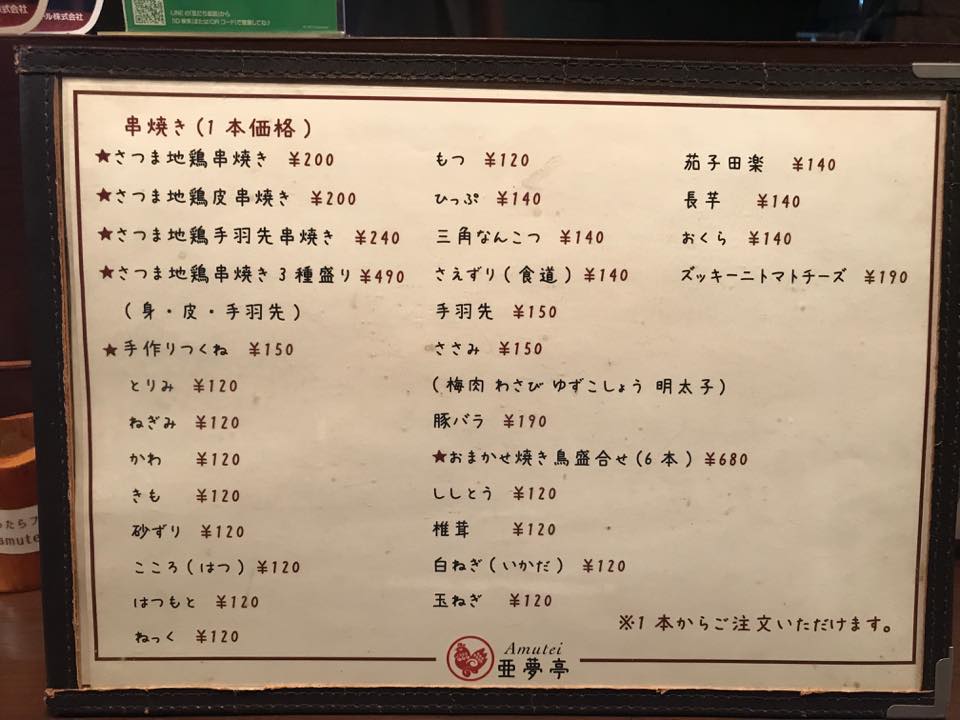 式会社
ール株式会社
LINEの「友だち追加」から
串焼き(1本価格)
★さつま地鶏串焼き ¥200
★さつま地鶏皮串焼き ¥200
★さつま地鶏手羽先串焼き ¥240
★さつま地鶏串焼き3種盛り ¥490
(身・皮・手羽先)
★手作りつくね ¥150
とりみ ¥120
ねぎみ ¥120
かわ ¥120
きも ¥120
砂ずり ¥120
こころ(はつ) ¥120
はつもと ¥120
ねっく ¥120
もつ ¥120
ひっぷ ¥140
三角なんこつ ¥140
さえずり(食道) ¥140
手羽先 ¥150
ささみ ¥150
(梅肉 わさび ゆずこしょう 明太子)
豚バラ ¥190
★おまかせ焼き鳥盛合せ(6本) ¥680
ししとう ¥120
椎茸 ¥120
白ねぎ(いかだ) ¥120
玉ねぎ ¥120
茄子田楽 ¥140
長芋 ¥140
おくら ¥140
ズッキーニトマトチーズ ¥190
※1本からご注文いただけます。
Amutei
亜夢亭